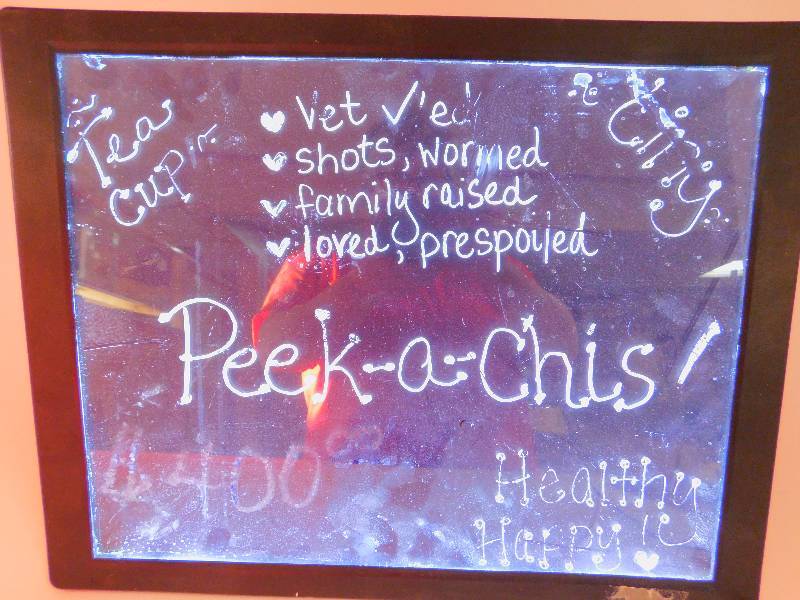 Tea
cup
♥ Vet ✓'ed
♥ shots, wormed
♥ family raised
♥ loved, prespoiled
Peek-a-chis!
400⁰⁰
Healthy
Happy!